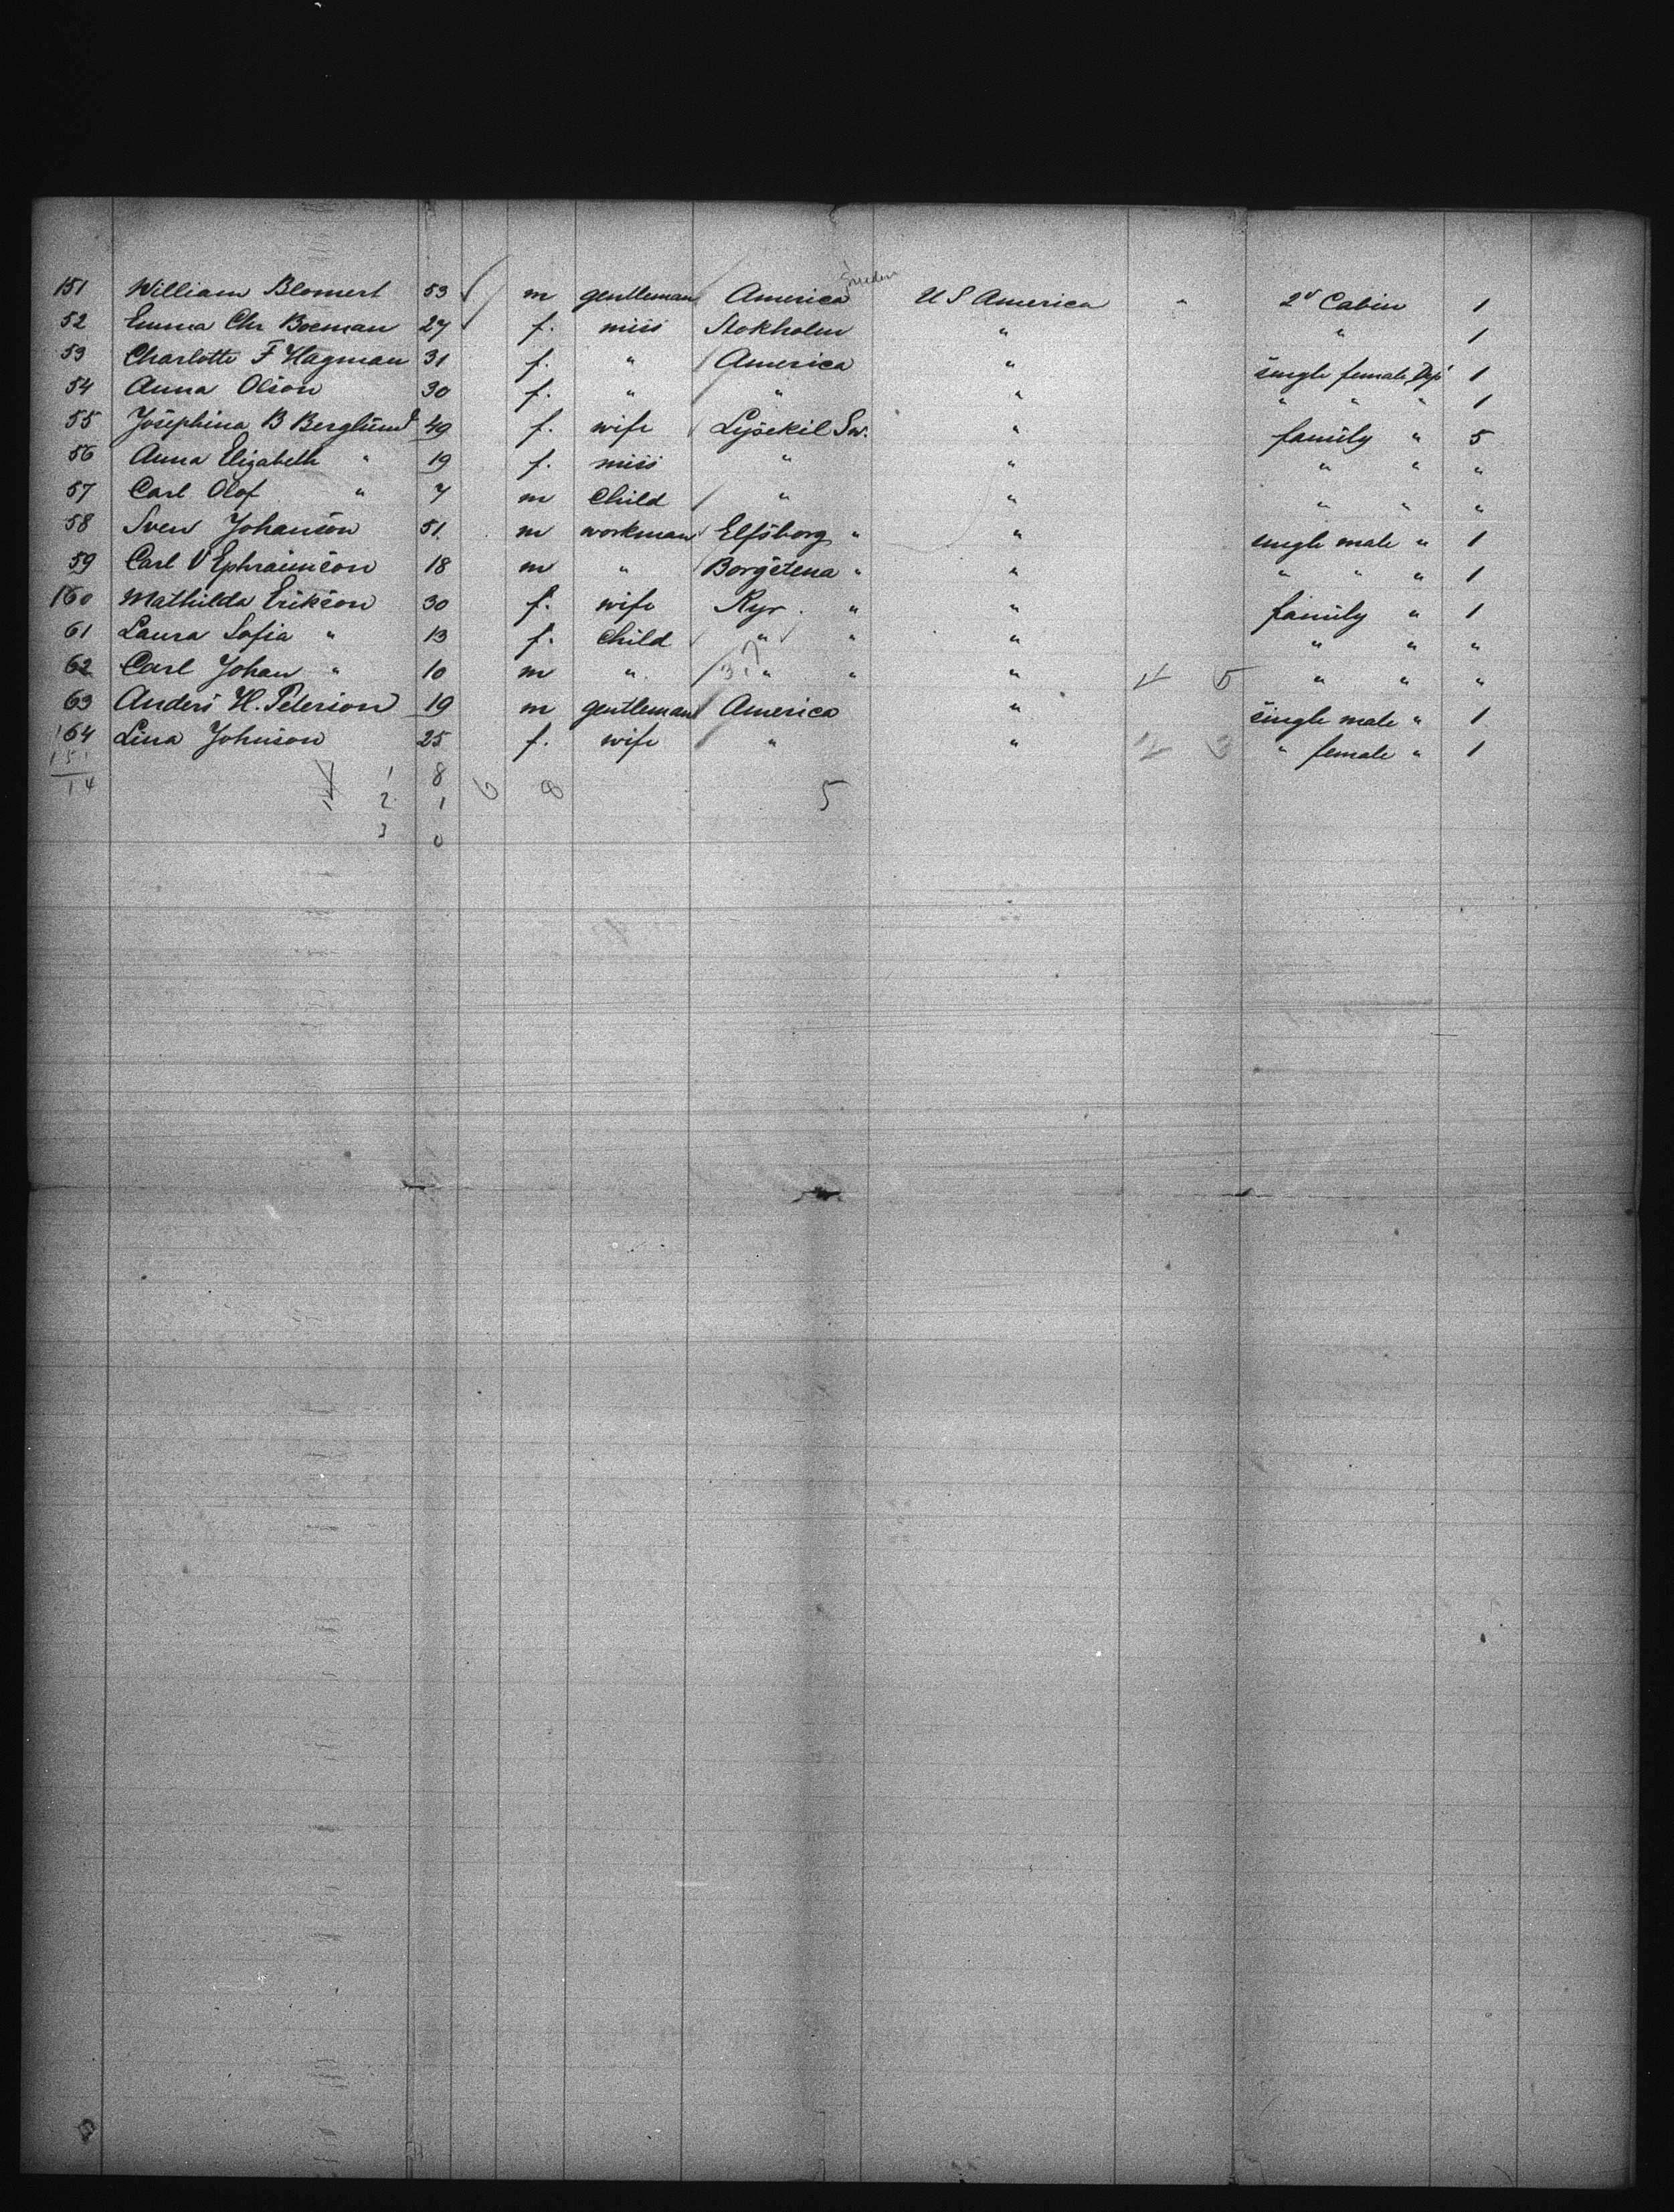 Sweden
151 William Blomert 53 m gentleman America U S America " 2d Cabin 1
52 Emma Chr Boeman 27 f. miss Stokholm " " 1
53 Charlotte F Hagman 31 f. " America " single female Dep 1
54 Anna Olson 30 f. " " " " " " 1
55 Josephina B Berglund 49 f. wife Lysekil Sw. " family " 5
56 Anna Elizabeth " 19 f. miss " " " " "
57 Carl Olof " 7 m Child " " " " "
58 Sven Johanson 51. m workman Elfsborg " " single male " 1
59 Carl V Ephraimson 18 m " Borgstena " " " " " 1
160 Mathilda Erikson 30 f. wife Ryr. " " family " 1
61 Laura Sofia " 13 f. Child " " " " " "
62 Carl Johan " 10 m " " " " " " "
63 Anders H. Peterson 19 m gentleman America " single male " 1
164 Lina Johnson 25 f. wife " " " female " 1
151 1 8
14 2 1 6 8 5
3 0